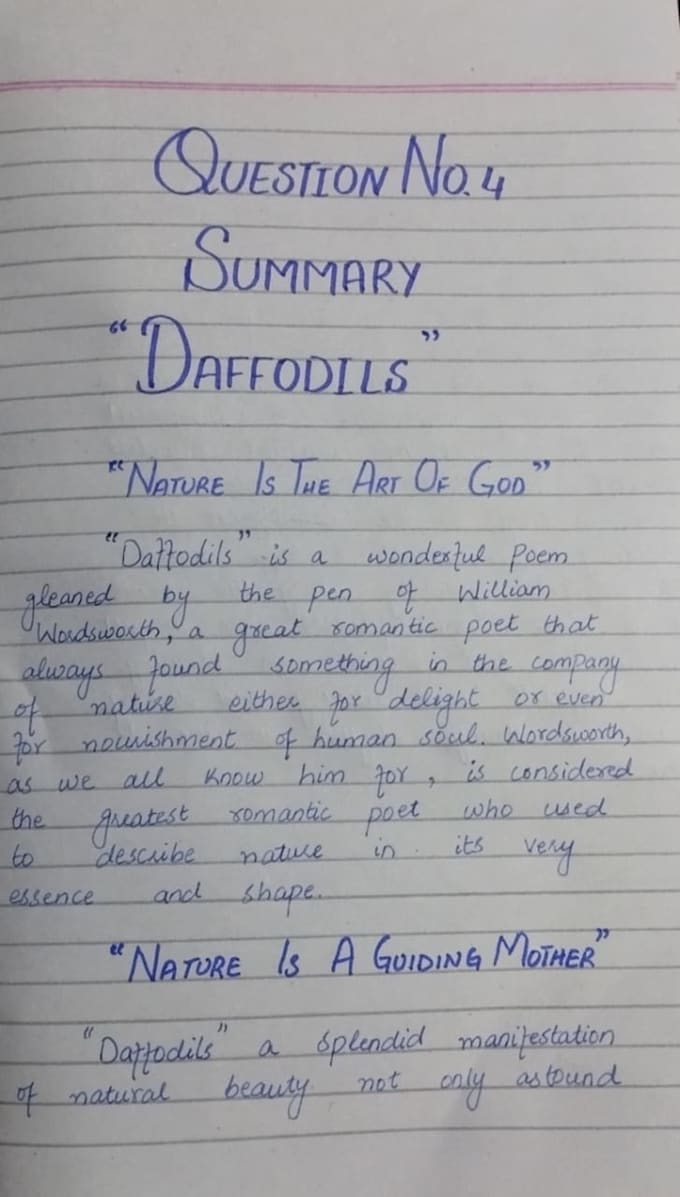 QUESTION NO. 4
SUMMARY
"DAFFODILS"
"NATURE IS THE ART OF GOD"
"Daffodils" is a wonderful poem
gleaned by the pen of William
Wordsworth, a great romantic poet that
always found something in the company
of nature either for delight or even
for nourishment of human soul. Wordsworth,
as we all know him for, is considered
the greatest romantic poet who used
to describe nature in its very
essence and shape.
"NATURE IS A GUIDING MOTHER"
"Daffodils" a splendid manifestation
of natural beauty not only astound